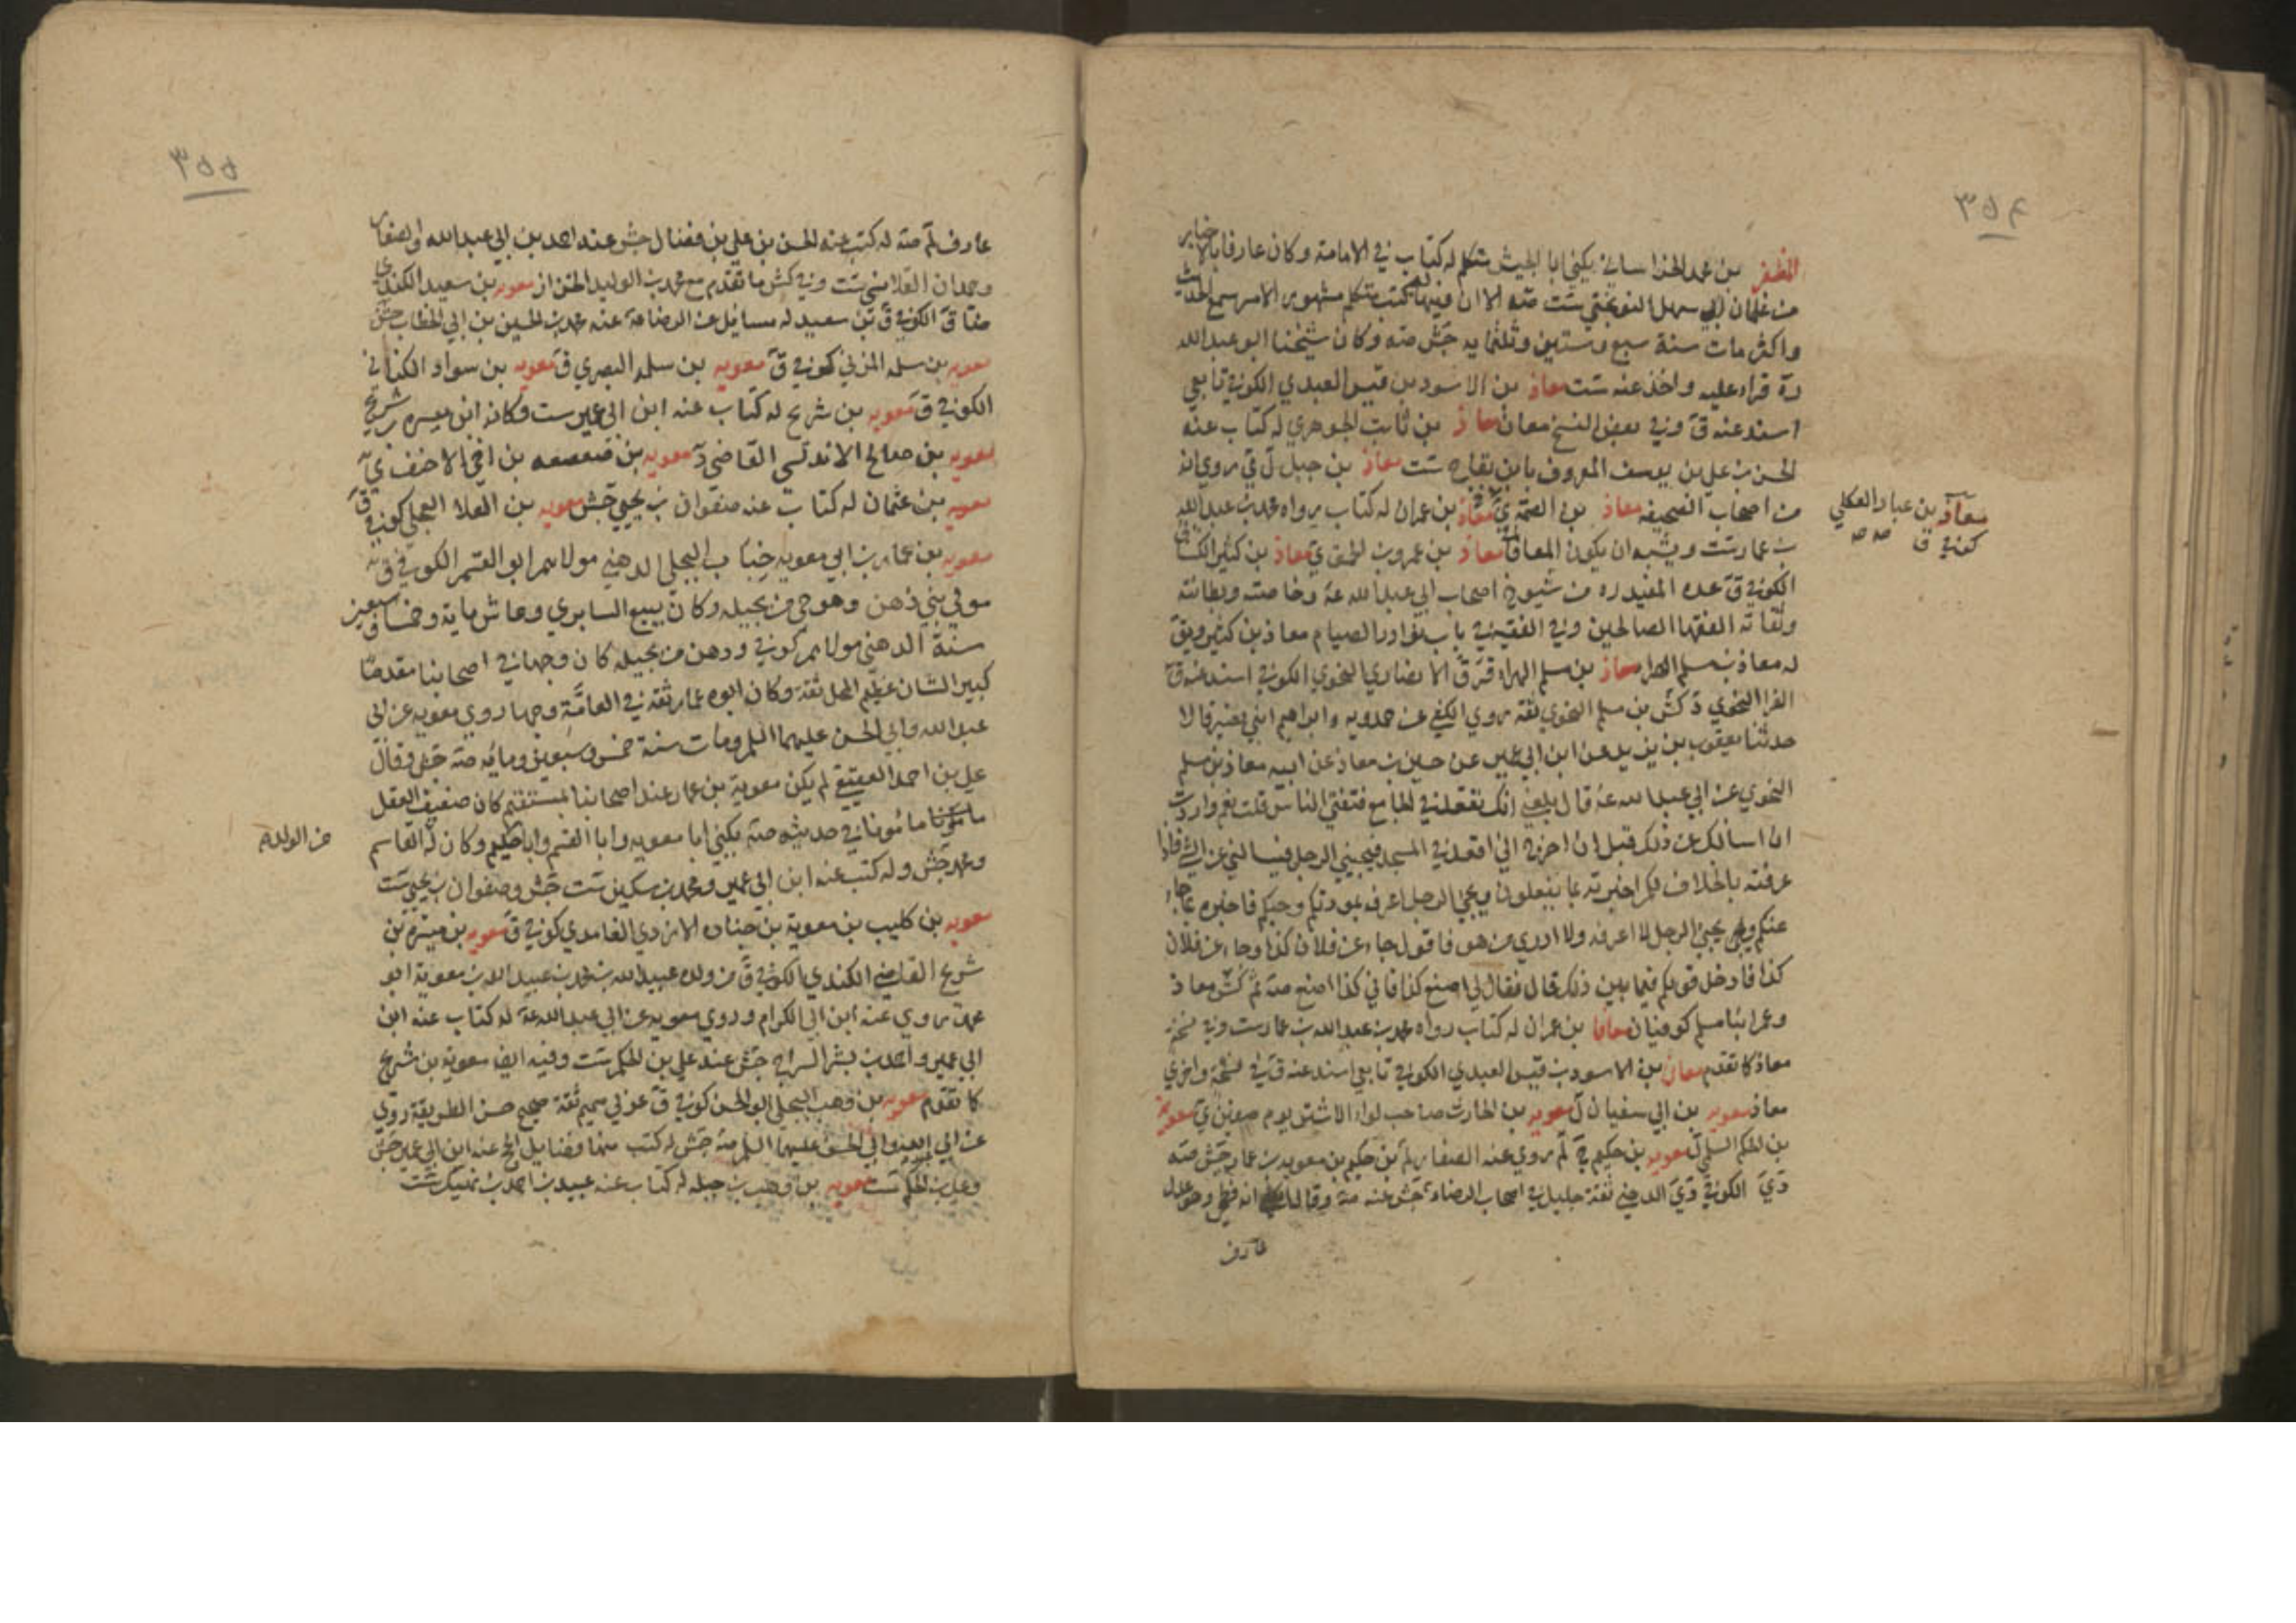 ٣٥۴
المظفر بن محمد الخراساني يكنى ابا الجيش متكلم له كتاب في الامامة وكان عارفا بالاخبار
من غلمان ابي سهل النوبختي ست صه الا ان فيها له كتب متكلم مشهور الامر سمع الحديث
واكثر مات سنة سبع وستين وثلثمايه جش صه وكان شيخنا ابو عبد الله
ره قراء عليه واخذ عنه ست معاذ بن الاسود بن قيس العبدي الكوفي تابعي
اسند عنه ق وفي بعض النسخ معان معاذ بن ثابت الجوهري له كتاب عنه
الحسن بن علي بن يوسف المعروف بابن بقاح ست معاذ بن جبل ل ي روي انه
من اصحاب الصحيفه معاذ بن الصمه ي معاذ بن عمران له كتاب رواه محمد بن عبد الله
بن عمار ست ويشبه ان يكون المعافا معاذ بن عمرو بن الجموح ي معاذ بن كثير الكسائي
الكوفي ق عده المفيد ره من شيوخ اصحاب ابي عبد الله عه وخاصته وبطانته
وثقاته الفقها الصالحين وفي الفقيه في باب نوادر الصيام معاذ بن كثير ويق
له معاذ بن مسلم الهراء معاذ بن مسلم الهراء قر ق الانصاري النحوي الكوفي اسند عنه ق
الفرا النحوي د كش بن مسلم النحوي ثقة روي الكشي عن حمدويه وابراهيم ابني نصير قالا
حدثنا يعقوب بن يزيد عن ابن ابي عمير عن حسين بن معاذ عن ابيه معاذ بن مسلم
النحوي عن ابي عبد الله عه قال بلغني انك تقعد في الجامع فتفتي الناس قلت نعم واردت
ان اسالك عن ذلك قبل ان اخرج اني اقعد في المسجد فيجيئني الرجل فيسالني عن الشي فاذا
عرفته بالخلاف لكم اخبرته بما يفعلون ويجي الرجل اعرفه بمودتكم وحبكم فاخبره بما جاء
عنكم ويجي الرجل لا اعرفه ولا ادري من هو فاقول جاء عن فلان كذا وجاء عن فلان
كذا فادخل قولكم فيما بين ذلك قال فقال لي اصنع كذا فاني كذا اصنع صه ثم كش معاذ
وعمر ابنا مسلم كوفيان معافا بن عمران له كتاب رواه محمد بن عبد الله بن عمار ست وفي نسخه
معاذ كما تقدم معان بن الاسود بن قيس العبدي الكوفي تابعي اسند عنه ق في نسخة واخري
معاذ معويه بن ابي سفيان ل معويه بن الحارث صاحب لواء الاشتر يوم صفين ي معويه
بن الحكم السلمي ل معويه بن حكيم ج لم روي عنه الصفار لم بن حكيم بن معويه بن عمار جش صه
دي الكوفي دي الدهني ثقة جليل في اصحاب الرضاء جش عنه صه وقال الكشي انه فطحي وهو عدل
عارف
معاذ بن عباد العكلي
كوفي ق صه صه
٣٥٥
عارف لم صه له كتب عنه الحسن بن علي بن فضال جش عنه احمد بن ابي عبد الله والصفار
وحمدان القلانسي ست وفي كش ما تقدم مع محمد بن الوليد الخزاز معويه بن سعيد الكندي
ضا ق الكوفي ق بن سعيد له مسايل عن الرضا عه عنه محمد بن الحسين بن ابي الخطاب جش
معويه بن سلمه المزني كوفي ق معويه بن سلمه البصري ق معويه بن سواد الكناني
الكوفي ق معويه بن شريح له كتاب عنه ابن ابي عمير ست وكانه ابن ميسره بن شريح
معويه بن صالح الاندلسي القاضي د معويه بن صعصعه بن اخي الاحنف ي
معويه بن عثمان له كتاب عنه صفوان بن يحيى جش معويه بن العلا العجلي كوفي ق
معويه بن عمار بن ابي معويه خباب البجلي الدهني مولاهم ابو القسم الكوفي ق
مولى بني دهن وهو حي من بجيله وكان يبيع السابري وعاش مايه وخمسا وسبعين
سنة الدهني مولاهم كوفي ودهن من بجيله كان وجها في اصحابنا مقدما
كبير الشان عظيم المحل ثقة وكان ابوه عمار ثقة في العامة وجها روي معويه عن ابي
عبد الله وابي الحسن عليهما السلم ومات سنة خمس وسبعين ومائه صه جش وقال
علي بن احمد العقيقي لم يكن معوية بن عمار عند اصحابنا بمستقيم كان ضعيف العقل
مامونا في حديثه صه يكنى ابا معويه وابا القسم وابا حكيم وكان له القاسم
ومحمد جش وله كتب عنه ابن ابي عمير ومحمد بن سكين ست جش وصفوان بن يحيى ست
معويه بن كليب بن معوية بن جناده الازدي الغامدي كوفي ق معويه بن ميسره بن
شريح القاضي الكندي الكوفي ق من ولده عبيد الله بن محمد بن عبيد الله بن معوية ابو
محمد روي عنه ابن ابي الكرام وروي معويه عن ابي عبد الله عه له كتاب عنه ابن
ابي عمير واحمد بن بشر السراج جش عنه علي بن الحكم ست وفيه ايض معوية بن شريح
كما تقدم معويه بن وهب البجلي ابو الحسن كوفي ق عربي صميم ثقة صحيح حسن الطريقة روي
عن ابي عبد الله وابي الحسن عليهما السلم صه جش له كتب منها فضايل الحج عنه ابن ابي عمير جش
وعلي بن الحكم ست معويه بن وهب بن جبله له كتاب عنه عبيد بن احمد بن نهيك ست
من الولد